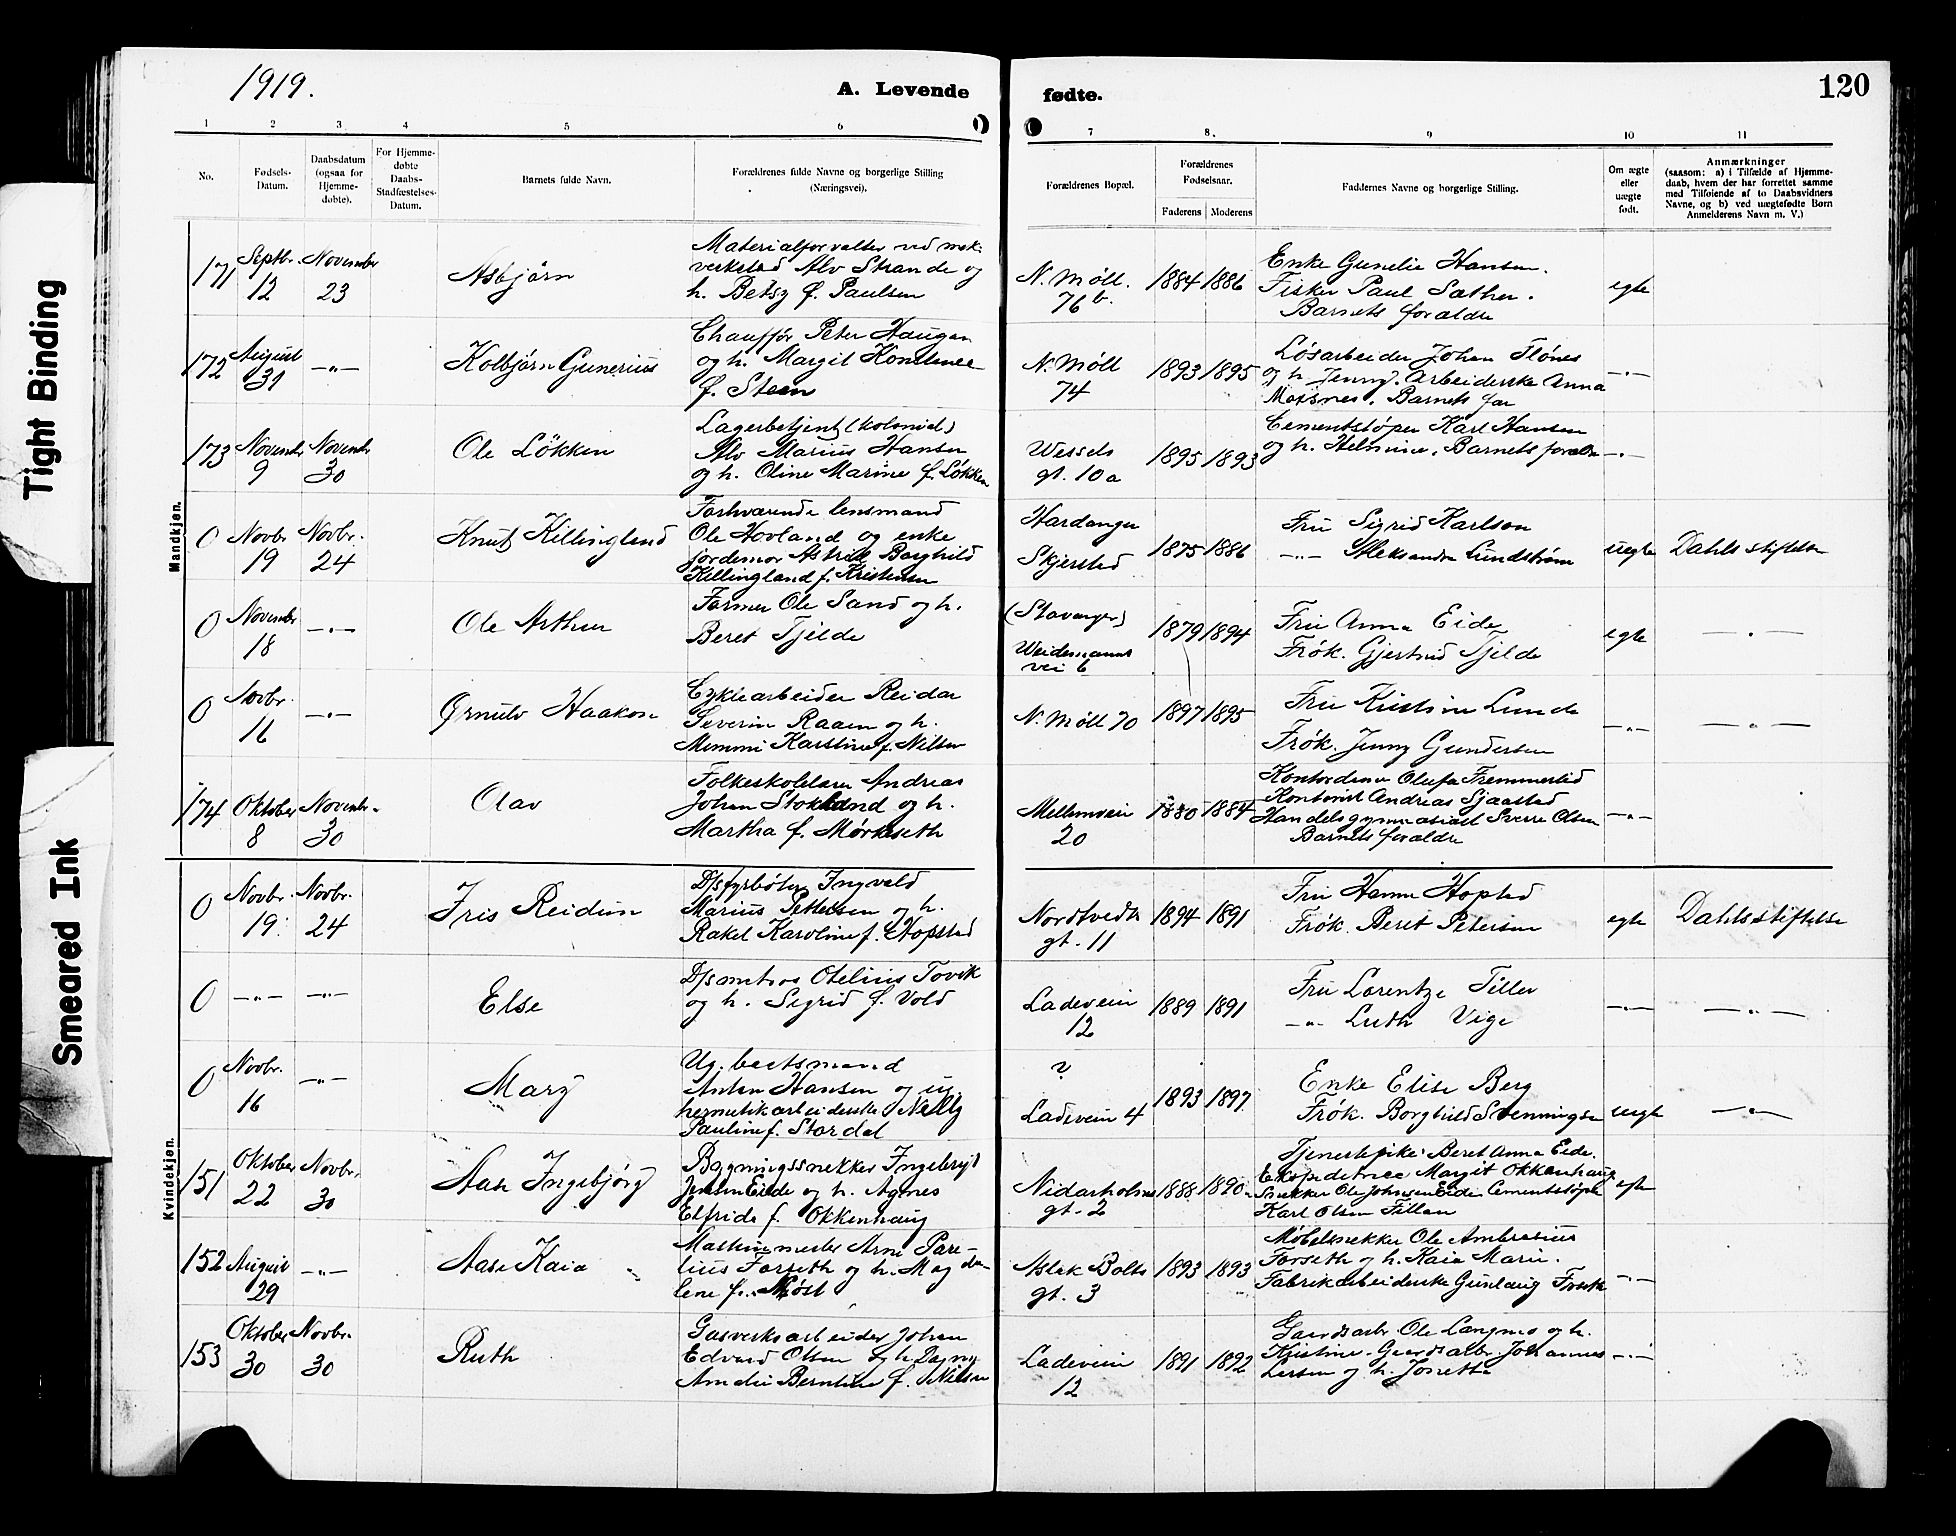 Tight Binding
Smeared Ink
1919.
A. Levende fødte.
120
1 2 3 4 5 6 7 8. 9 10 11
No.
Fødsels-
Datum.
Daabsdatum
(ogsaa for
Hjemme-
døbte).
For Hjemme-
døbte
Daabs-
Stadfæstelses-
Datum.
Barnets fulde Navn.
Forældrenes fulde Navne og borgerlige Stilling
(Næringsvei).
Forældrenes Bopæl.
Forældrenes
Fødselsaar.
Faderens
Moderens
Faddernes Navne og borgerlige Stilling.
Om ægte
eller
uægte
født.
Anmærkninger
(saasom: a) i Tilfælde af Hjemme-
daab, hvem der har forrettet samme
med Tilføiende af to Daabsvidners
Navne, og b) ved uægtefødte Børn
Anmelderens Navn m. V.)
Mandkjøn.
171
Septbr.
12
November
23
Asbjørn
Materialforvalter ved mek.
verksted Alv Strande og
h. Betsy f. Paulsen
N. Møll.
76 b.
1884 1886
Enke Gunelie Hansen.
Fisker Paul Sæther.
Barnets forældre
egte
172
August
31
-"-
Kolbjørn Gunerius
Chauffør Peter Haugen
og h. Margit Konstanse
f. Steen
N. Møll
74
1893 1895
Løsarbeider Johan Flønes
og h. Jenny. Arbeiderske Anna
Moxsnes. Barnets far
-"-
173
Novembr
9
Novembr
30
Ole Løkken
Lagerbetjent (kolonial)
Alv Marius Hansen
og h. Oline Marine f. Løkken
Wessels
gt. 10a
1895 1893
Cementstøper Karl Hansen
og h. Helmine. Barnets forældre
-"-
0
Novbr
19
Novbr.
24
Knut Killingland
Forhværende lensmand
Ole Hovland og enke
jordemor Astrid Borghild
Killingland f. Kristensen
Hardanger
Skjersted
1875 1886
Fru Sigrid Karlson
-"- Aleksandra Lundstrøm
uegte
Dahls stiftelse
0
November
18
-"-
Ole Arthur
Farmer Ole Sand og h.
Beret Tjelde
(Stavanger)
Weidemanns
vei 6
1879 1894
Fru Anna Eide
Frøk. Gjertrud Tjelde
egte
-"-
0
Novbr.
16
-"-
Ørnulv Haakon
Cyklearbeider Reidar
Severin Raaen og h.
Mimmi Karstine f. Nilsen
N. Møll 70
1897 1895
Fru Kristine Lunde
Frøk. Jenny Gundersen
-"-
-"-
174
Oktober
8
Novembr.
30
Olav
Folkeskolelærer Andreas
Johan Stokland og h.
Martha f. Mørkeseth
Mellemveien
20
1880 1884
Kontordame Olufa Fremmerlid
Kontorist Andreas Sjaastad
Handelsgymnasiast Sverre Olsen
Barnets forældre
-"-
Kvindekjøn.
0
Novbr.
19
Novbr.
24
Iris Reidun
D/s fyrbøter Ingvald
Marius Pettersen og h.
Rakel Karoline f. Hopstad
Nordtvedts
gt. 11
1894 1891
Fru Hanna Hopstad
Frøk. Beret Petersen
egte
Dahls stiftelse
0
-"-
-"-
Else
D/s matros Otelius Tovik
og h. Sigrid f. Vold
Ladeveien
12
1889 1891
Fru Lorentze Tiller
-"- Luth Vige
-"-
-"-
0
Novbr.
16
-"-
Mary
Ug. baatsmand
Anton Hansen og ug
hermetikarbeiderske Nelly
Pauline f. Stordal
?
Ladeveien 4
1893 1897
Enke Elise Berg
Frøk. Borghild Svenningsen
uegte
-"-
151
Oktober
22
Novbr.
30
Aase Ingebjørg
Bygningssnekker Ingebrigt
Jensen Eide og h. Agnes
Elfrida f. Okkenhaug
Nidarholms
gt. 2
1888 1890
Tjenestepike Beret Anna Eide.
Ekspeditrice Margit Okkenhaug
Snekker Ole Johnsen Eide Cementstøper
Karl Olsen Tillan
egte
152
August
29
-"-
Aase Kaia
Maskinmester Arne Pare-
lius Forseth og h. Magda-
lene f. Møst
Aslak Bolts
gt. 3
1893 1893
Møbelsnekker Ole Ambrosius
Forseth og h. Kaia Marie.
Fabrikarbeiderske Gunlaug Forseth
-"-
153
Oktober
30
Novbr.
30
Ruth
Gasverksarbeider Johan
Edvard Olsen og h. Dagny
Amalie Berntine f. Nilsen
Ladeveien
12
1891 1892
Gaardsarbr Ole Langmo og h.
Kristine. Gaardsarbr. Johannes
Larsen og h. Jonetta
-"-